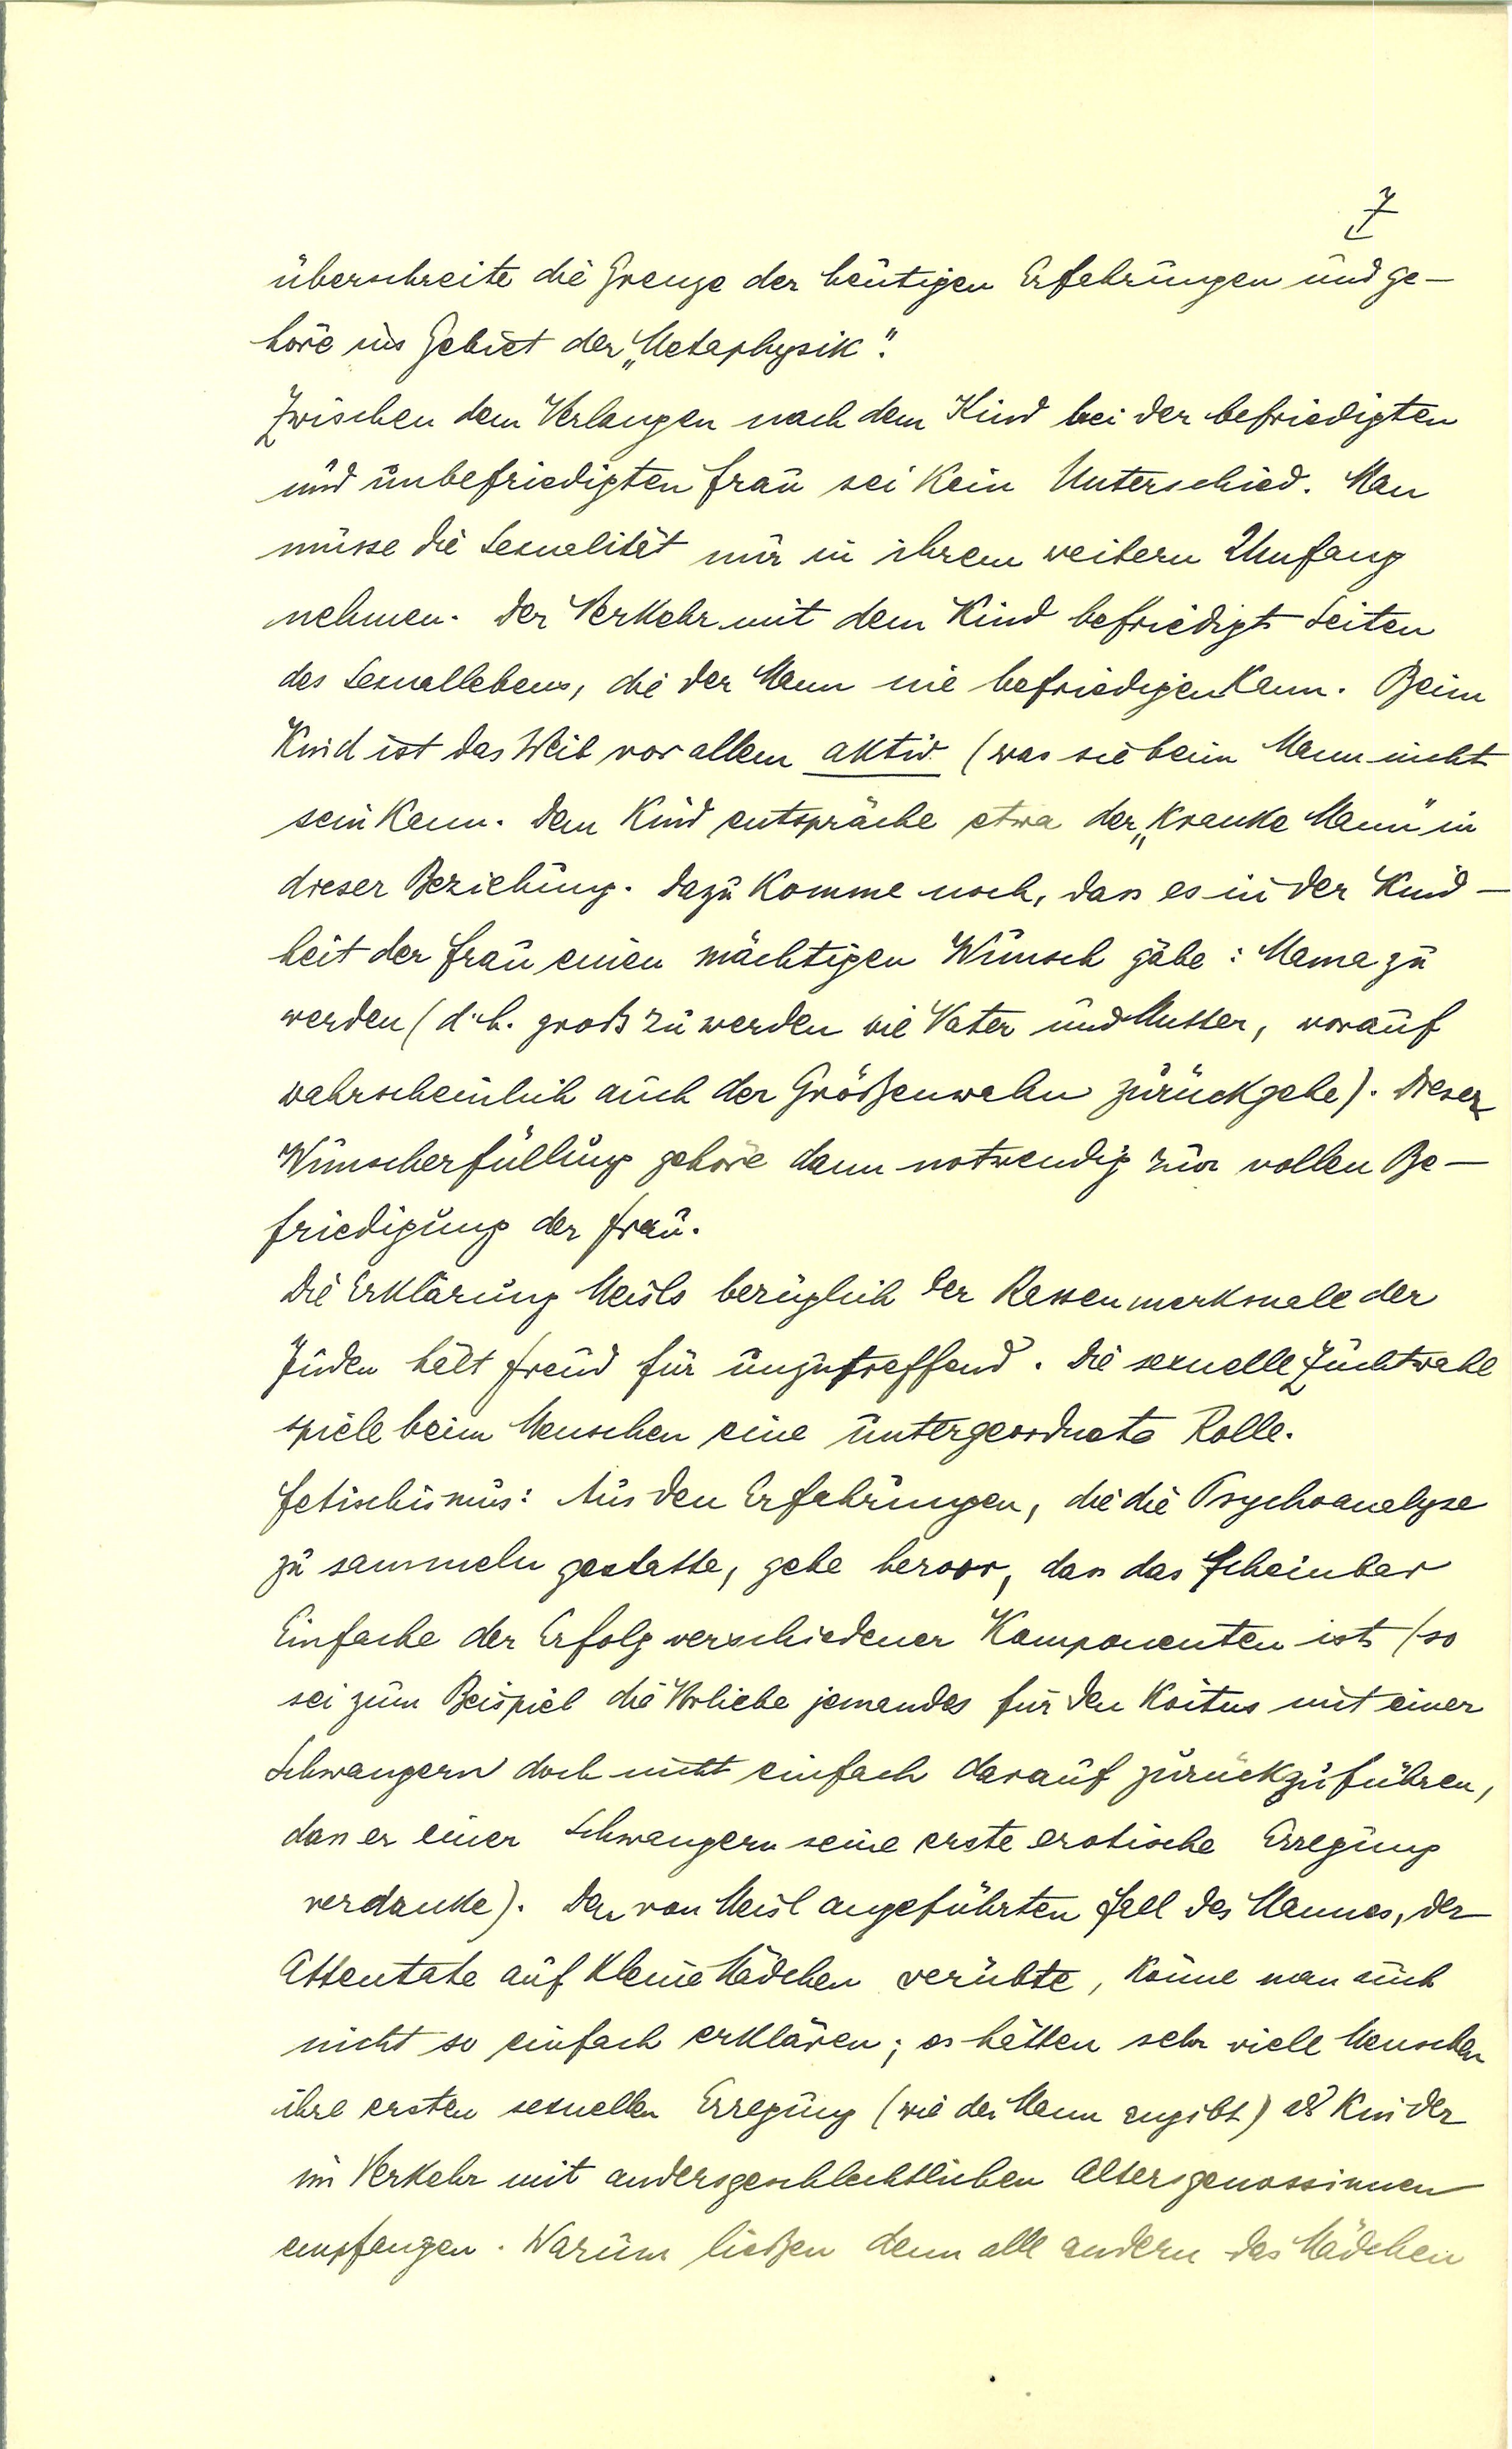 7
überschreite die Grenze der heutigen Erfahrungen und ge-
höre ins Gebiet der „Metaphysik“.
Zwischen dem Verlangen nach dem Kind bei der befriedigten
und unbefriedigten Frau sei kein Unterschied. Man
müsse die Sexualität nur in ihrem weitern Umfang
nehmen. Der Verkehr mit dem Kind befriedigt Seiten
des Sexuallebens, die der Mann nie befriedigen kann. Beim
Kind ist das Weib vor allem aktiv (was sie beim Mann nicht
sein kann. Dem Kind entspräche etwa der „kranke Mann“ in
dieser Beziehung. Dazu komme noch, dass es in der Kind-
heit der Frau einen mächtigen Wunsch gäbe: Mama zu
werden (d.h. groß zu werden wie Vater und Mutter, worauf
wahrscheinlich auch der Größenwahn zurückgehe). Dieser
Wunscherfüllung gehöre dann notwendig zur vollen Be-
friedigung der Frau.
Die Erklärung Meisls bezüglich der Rassenmerkmale der
Juden hält Freud für unzutreffend. Die sexuelle Zuchtwahl
spiele beim Menschen eine untergeordnete Rolle.
Fetischismus: Aus den Erfahrungen, die die Psychoanalyse
zu sammeln gestatte, gehe hervor, dass das scheinbar
Einfache der Erfolg verschiedener Komponenten ist (so
sei zum Beispiel die Vorliebe jemandes für den Koitus mit einer
Schwangern doch nicht einfach darauf zurückzuführen,
dass er einer Schwangern seine erste erotische Erregung
verdanke). Den von Meisl angeführten Fall des Mannes, der
Attentate auf kleine Mädchen verübte, könne man auch
nicht so einfach erklären; es hätten sehr viele Menschen
ihre ersten sexuellen Erregung (wie der Mann angibt) als Kinder
im Verkehr mit andersgeschlechtlichen Altersgenossinnen
empfangen. Warum ließen denn alle andern das Mädchen